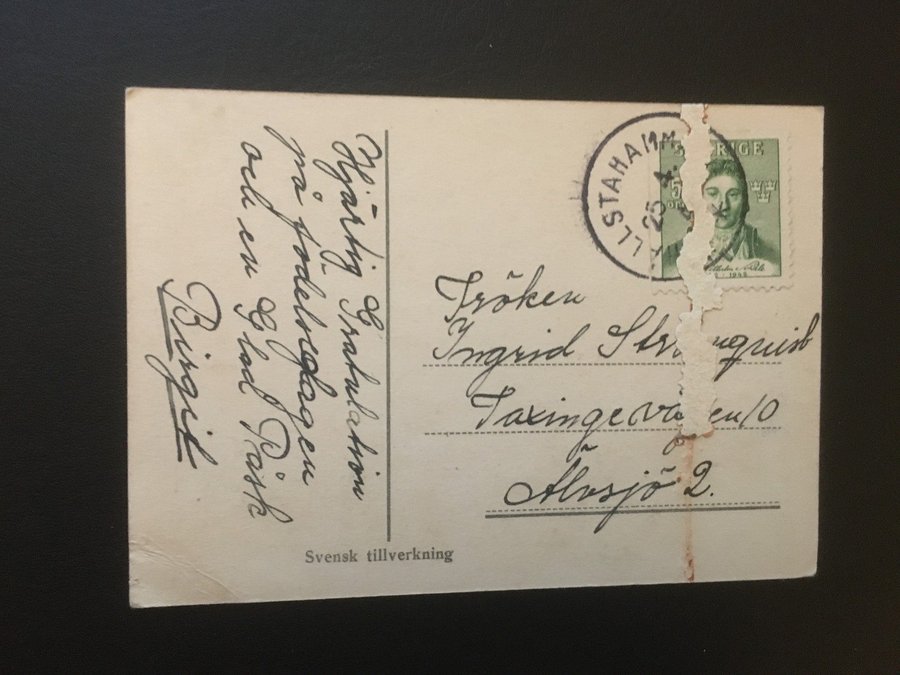 Hjärtlig Gratulation
på födelsedagen
och en Glad Påsk
Birgit
LLSTAHAMM
25 4
SVERIGE
5
1942
Fröken
Ingrid
Taxingevägen
Älvsjö 2.
Svensk tillverkning